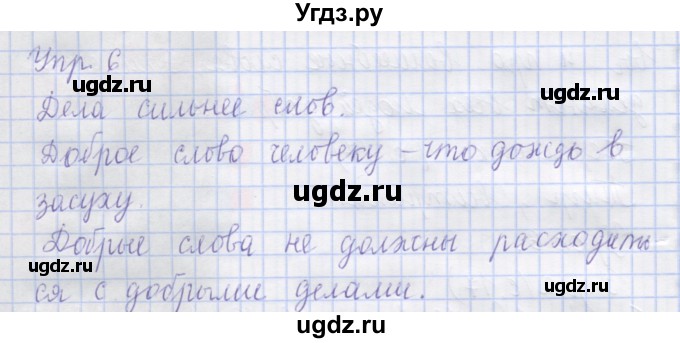 Угдз.ру
Упр. 6
ugdz.ru ugdz.ru
Дела сильнее слов.
Доброе слово человеку – что дождь в
ugdz.ru
засуху.
Добрые слова не должны расходить-
ugdz.ru ugdz.ru
ся с добрыми делами.
ugdz.ru